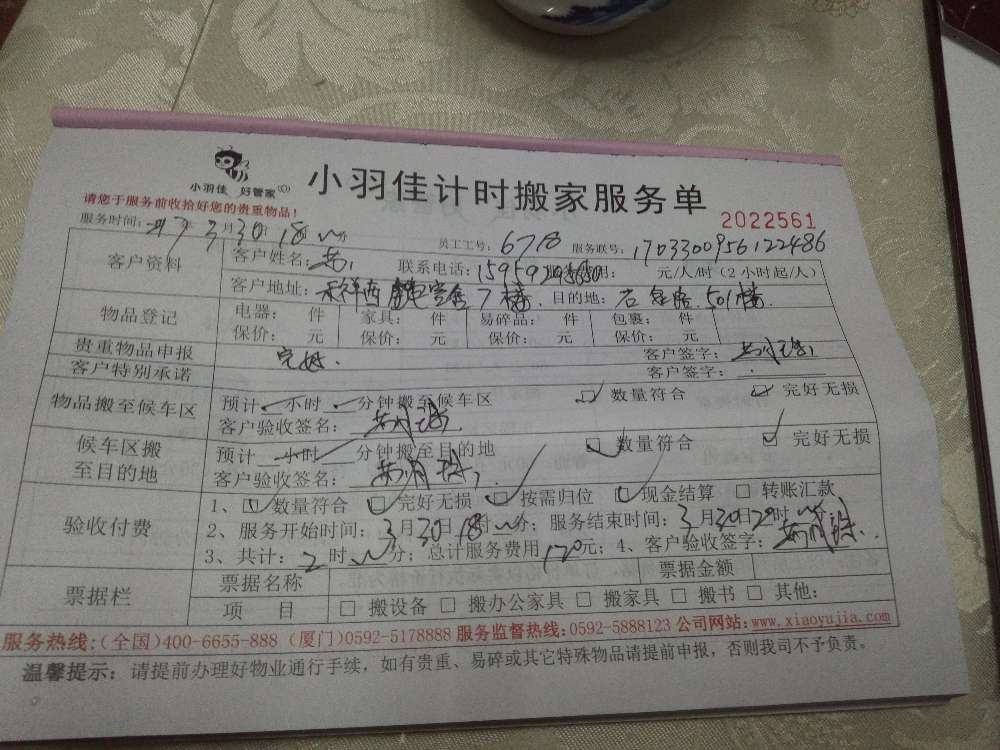 小羽佳 好管家
小羽佳计时搬家服务单
请您于服务前收拾好您的贵重物品!
2022561
服务时间: 年3月30日18时分
员工工号: 678 服务联号: 1703300956122486
客户资料
客户姓名: 联系电话: 元/人/时(2小时起/人)
客户地址: 7楼 目的地: 501楼
物品登记
电器: 件 家具: 件 易碎品: 件 包裹: 件
保价: 元 保价: 元 保价: 元 保价: 元
贵重物品申报 完好. 客户签字:
客户特别承诺 客户签字:
物品搬至候车区
预计 小时 分钟搬至候车区 数量符合 完好无损
客户验收签名:
候车区搬至目的地
预计 小时 分钟搬至目的地 数量符合 完好无损
客户验收签名:
验收付费
1、数量符合 完好无损 按需归位 现金结算 转账汇款
2、服务开始时间: 3月30日18时分; 服务结束时间: 3月30日20时分
3、共计: 2时分; 总计服务费用170元; 4、客户验收签字:
票据栏
票据名称 票据金额
项 目 搬设备 搬办公家具 搬家具 搬书 其他:
服务热线:(全国)400-6655-888 (厦门)0592-5178888 服务监督热线:0592-5888123 公司网站:www.xiaoyujia.com
温馨提示: 请提前办理好物业通行手续,如有贵重、易碎或其它特殊物品请提前申报,否则我司不予负责。